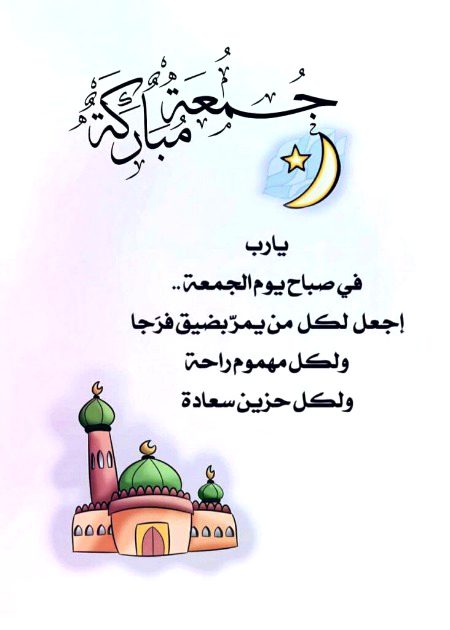 جُمُعَة مُبَارَكَة
يارب
في صباح يوم الجمعة ..
إجعل لكل من يمرّ بضيق فرَجا
ولكل مهموم راحة
ولكل حزين سعادة